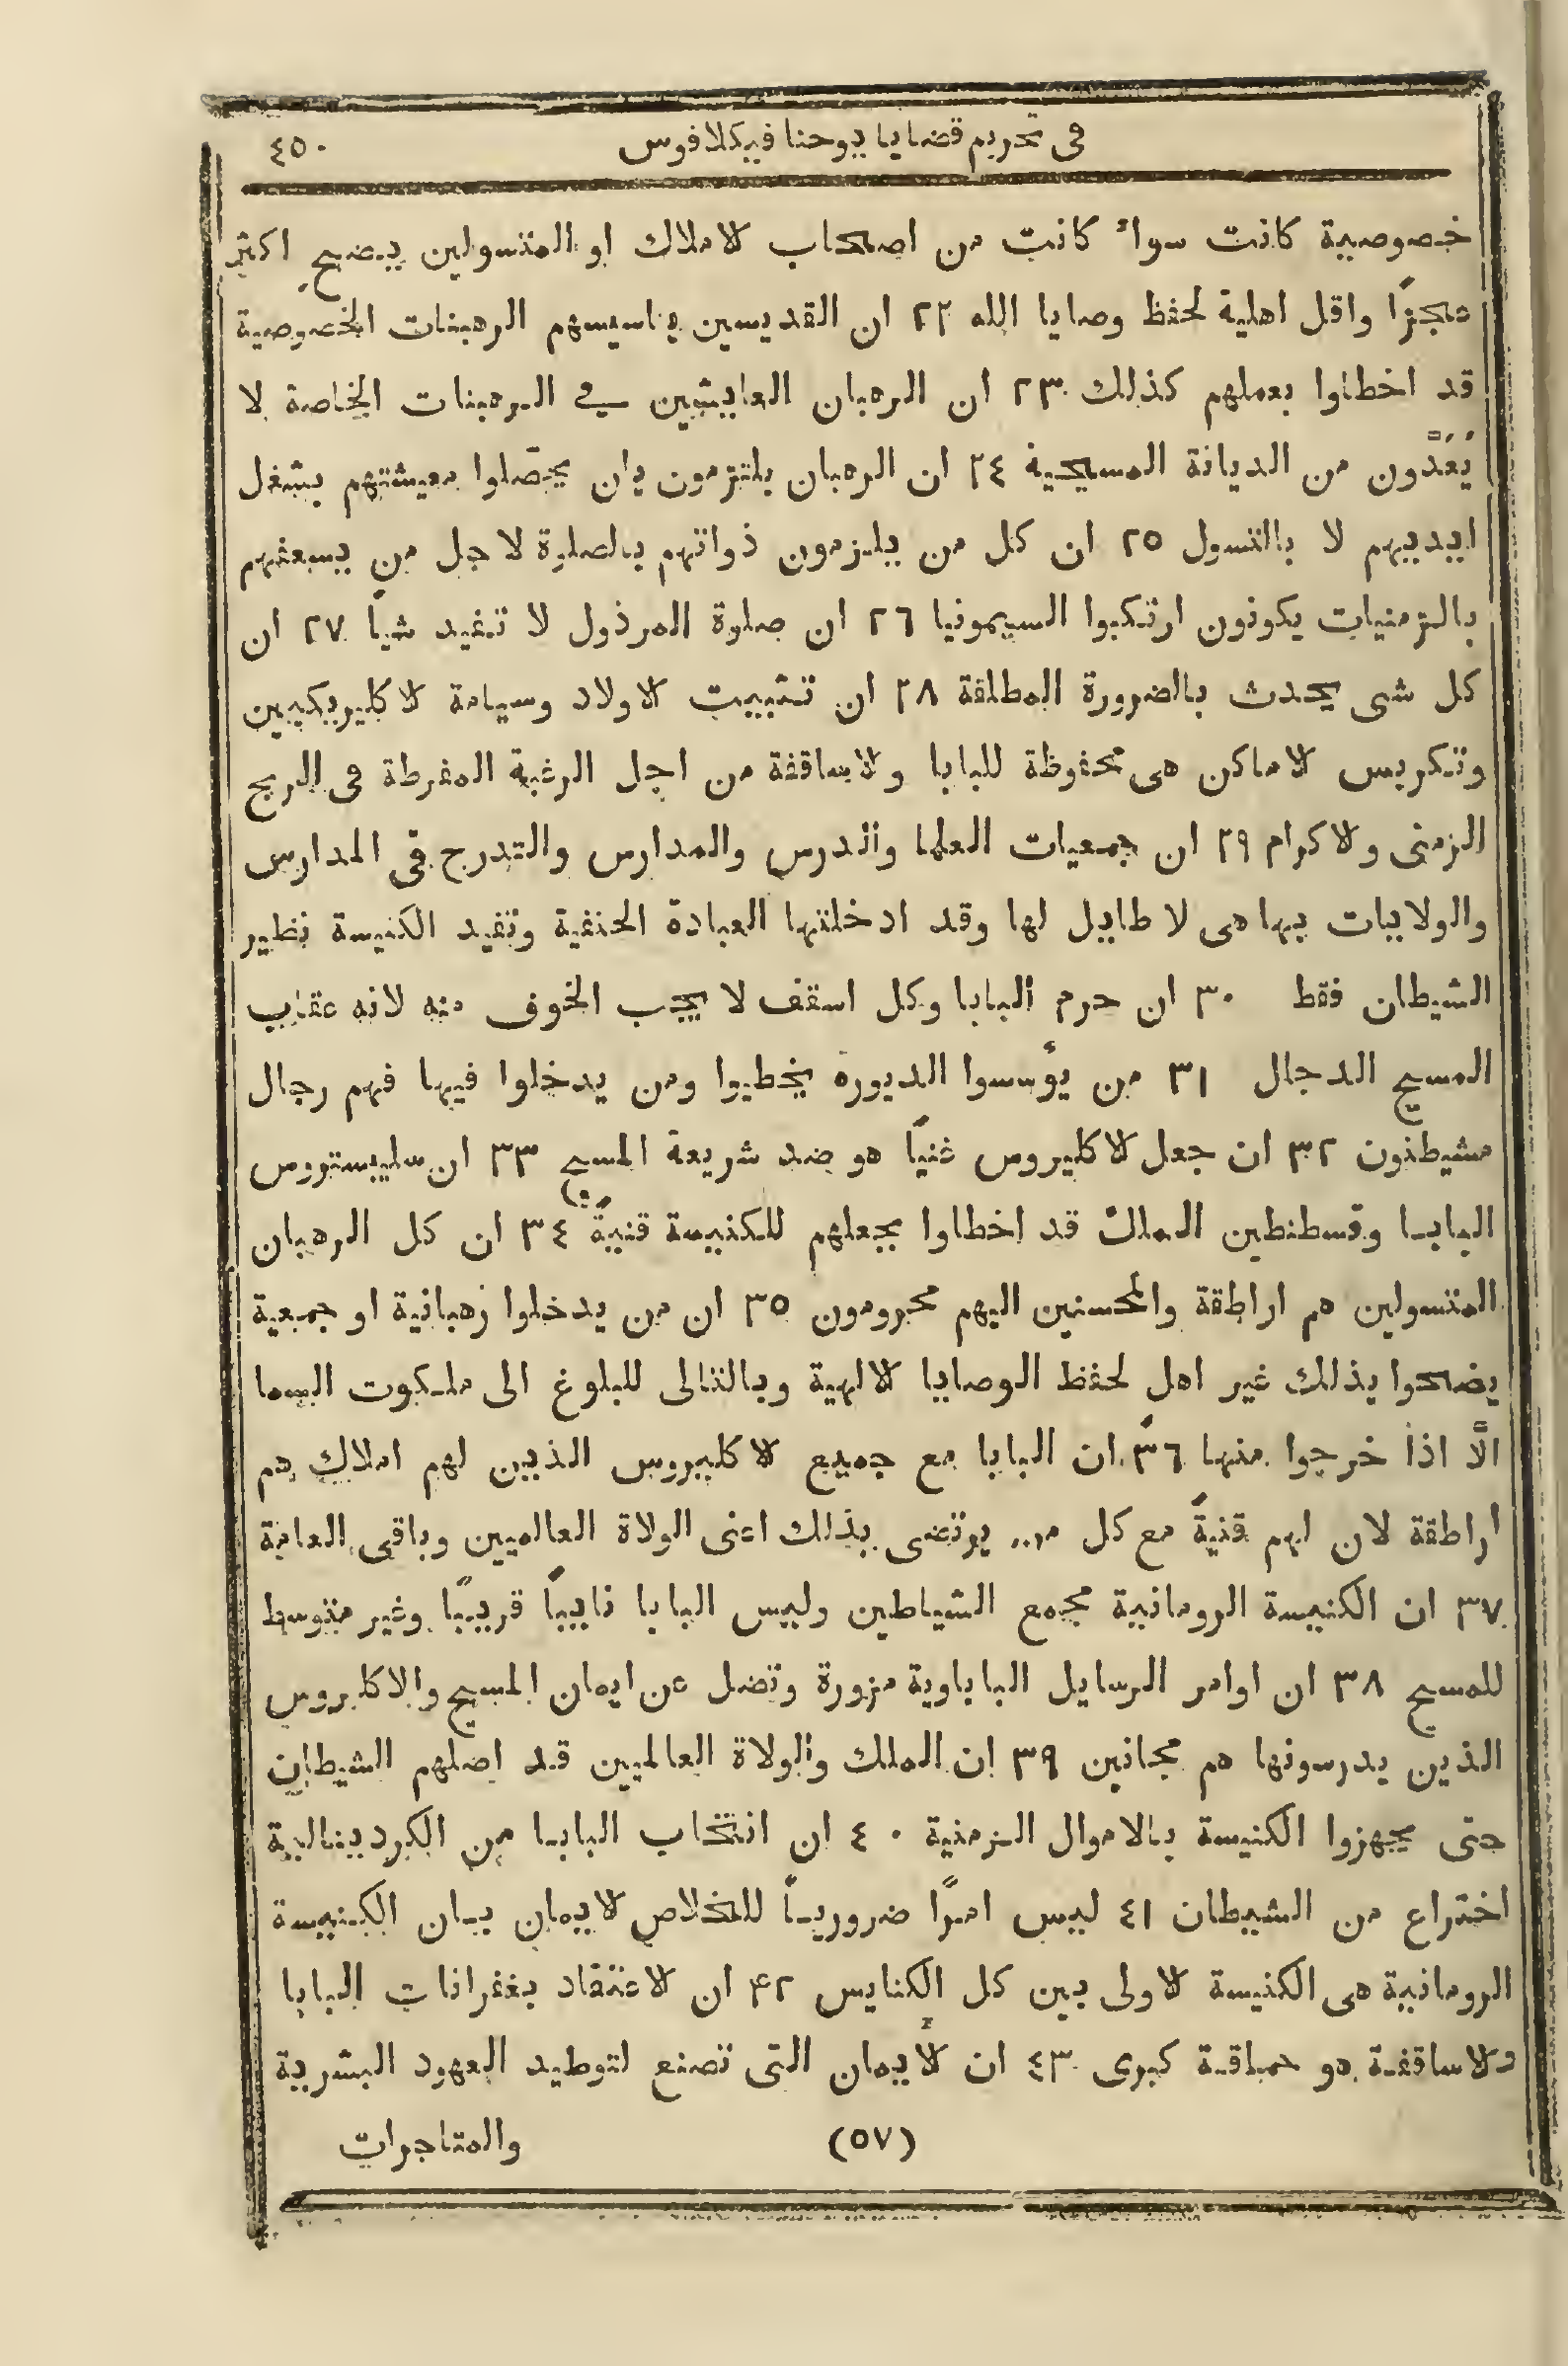 في تحريم قضايا يوحنا فيكلافوس ٤٥٠
خصوصية كانت سواءً كانت من اصحاب لاملاك او المتسولين يضحِ اكثر
عجزًا واقل اهلية لحفظ وصايا الله ٢٢ ان القديسين باسيسهم الرهبنات الخصوصية
قد اخطاوا بعملهم كذلك ٢٣ ان الرهبان العايشين في الرهبنات الخاصة لا
يُعَدّون من الديانة المسيحية ٢٤ ان الرهبان يلتزمون بان يحصّلوا معيشتهم بشغل
ايدييهم لا بالتسول ٢٥ ان كل من يلزمون ذواتهم بالصلوة لاجل من يسعفهم
بالزمنيات يكونون ارتكبوا السيمونيا ٢٦ ان صلوة المرذول لا تفيد شياً ٢٧ ان
كل شى يحدث بالضرورة المطلقة ٢٨ ان تثبيت لاولاد وسيامة لاكليريكيين
وتكريس لاماكن هى محفوظة للبابا ولاساقفة من اجل الرغبة المفرطة في الربح
الزمنى ولاكرام ٢٩ ان جمعيات العلما والدرس والمدارس والتدرج في المدارس
والولايات بها هى لا طايل لها وقد ادخلتها العبادة الحنفية وتفيد الكنيسة نظير
الشيطان فقط ٣٠ ان حرم البابا وكل اسقف لا يجب الخوف منه لانه عقاب
المسيح الدجال ٣١ من يوٴسسوا الديورة يخطيوا ومن يدخلوا فيها فهم رجال
مشيطنون ٣٢ ان جعل لاكليروس غنيًا هو ضد شريعة المسيح ٣٣ ان سليبستروس
البابا وقسطنطين الملك قد اخطاوا بجعلهم للكنيسة قنيةً ٣٤ ان كل الرهبان
المتسولين هم اراطقة والمحسنين اليهم محرومون ٣٥ ان من يدخلوا رهبانية او جمعية
يضحوا بذلك غير اهل لحفظ الوصايا لالهية وبالتالى للبلوغ الى ملكوت السما
الَّا اذا خرجوا منها ٣٦ ان البابا مع جميع لاكليروس الذين لهم املاك هم
اراطقة لان لهم قنيةً مع كل من يرتضى بذلك اعنى الولاة العالميين وباقى العامة
٣٧ ان الكنيسة الرومانية مجمع الشياطين وليس البابا نايباً قريبًا وغير متوسط
للمسيح ٣٨ ان اوامر الرسايل الباباوية مزورة وتضل عن ايمان المسيح والاكليروس
الذين يدرسونها هم مجانين ٣٩ ان الملك والولاة العالميين قد اضلهم الشيطان
حتى يجهزوا الكنيسة بالاموال الزمنية ٤٠ ان انتخاب البابا من الكردينالية
اختراع من الشيطان ٤١ ليس امرًا ضرورياً للخلاص لايمان بان الكنيسة
الرومانية هى الكنيسة لاولى بين كل الكنايس ٤٢ ان لاعتقاد بغفرانات البابا
ولاساقفة هو حماقة كبرى ٤٣ ان لأيمان التى تصنع لتوطيد العهود البشرية
(٥٧) والمتاجرات